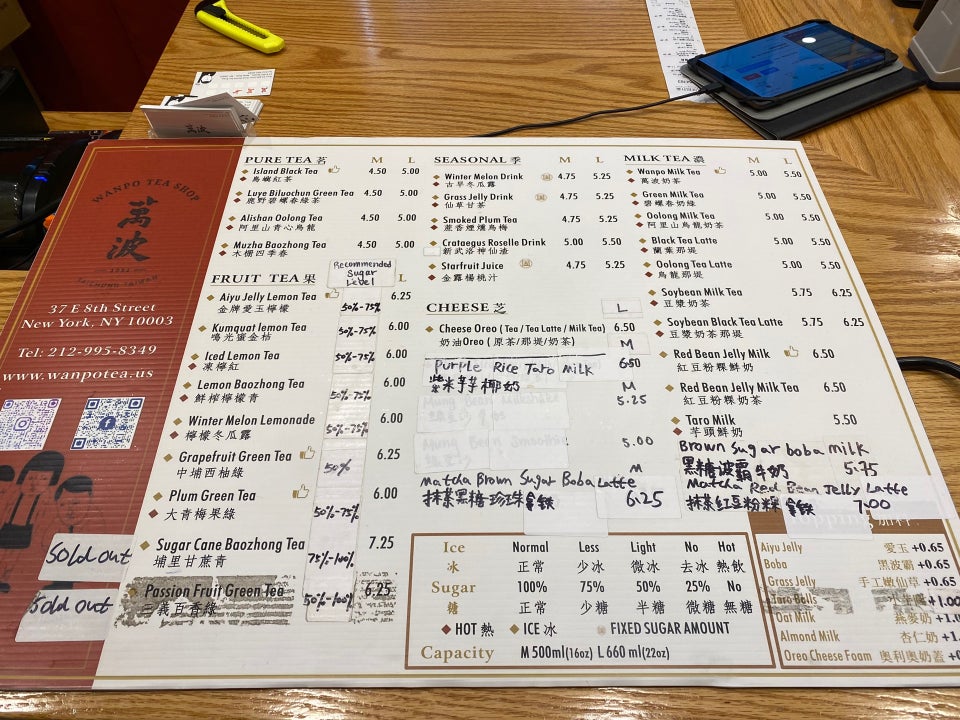 WANPO TEA SHOP
萬波
37 E 8th Street
New York, NY 10003
Tel: 212-995-8349
www.wanpotea.us
Sold out
Sold out
PURE TEA 茗 M L
Island Black Tea 4.50 5.00
島嶼紅茶
Luye Biluochun Green Tea 4.50 5.00
鹿野碧螺春綠茶
Alishan Oolong Tea 4.50 5.00
阿里山青心烏龍
Muzha Baozhong Tea 4.50 5.00
木柵四季春
FRUIT TEA 果 Recommended Sugar Level L
Aiyu Jelly Lemon Tea 50%-75% 6.25
金牌愛玉檸檬
Kumquat lemon Tea 50%-75% 6.00
鳴光蜜金桔
Iced Lemon Tea 50%-75% 6.00
凍檸紅
Lemon Baozhong Tea 50%-75% 6.00
鮮榨檸檬青
Winter Melon Lemonade 50%-75% 6.00
檸檬冬瓜露
Grapefruit Green Tea 50% 6.25
中埔西柚綠
Plum Green Tea 50%-75% 6.00
大青梅果綠
Sugar Cane Baozhong Tea 75%-100% 7.25
埔里甘蔗青
Passion Fruit Green Tea 50%-100% 6.25
三義百香綠
SEASONAL 季 M L
Winter Melon Drink 4.75 5.25
古早冬瓜露
Grass Jelly Drink 4.75 5.25
仙草甘茶
Smoked Plum Tea 4.75 5.25
蔗香煙燻烏梅
Crataegus Roselle Drink 5.00 5.50
新武洛神仙渣
Starfruit Juice 4.75 5.25
金露楊桃汁
CHEESE 芝 L
Cheese Oreo ( Tea / Tea Latte / Milk Tea) 6.50
奶油Oreo ( 原茶/那堤/奶茶) M
Purple Rice Taro Milk 6.50
紫米芋芋椰奶
Mung Bean Milkshake M
5.25
Mung Bean Smoothie 5.00
Matcha Brown Sugar Boba Latte M
抹茶黑糖珍珠拿鉄 6.25
MILK TEA 濃 M L
Wanpo Milk Tea 5.00 5.50
萬波奶茶
Green Milk Tea 5.00 5.50
碧螺春奶綠
Oolong Milk Tea 5.00 5.50
阿里山烏龍奶茶
Black Tea Latte 5.00 5.50
蘭葉那堤
Oolong Tea Latte 5.00 5.50
烏龍那堤
Soybean Milk Tea 5.75 6.25
豆漿奶茶
Soybean Black Tea Latte 5.75 6.25
豆漿奶茶那堤
Red Bean Jelly Milk 6.50
紅豆粉粿鮮奶
Red Bean Jelly Milk Tea 6.50
紅豆粉粿奶茶
Taro Milk 5.50
芋頭鮮奶
Brown Sugar boba milk
黑糖波霸牛奶 5.75
Matcha Red Bean Jelly Latte
抹茶紅豆粉粿拿鉄 7.00
Ice Normal Less Light No Hot
冰 正常 少冰 微冰 去冰 熱飲
Sugar 100% 75% 50% 25% No
糖 正常 少糖 半糖 微糖 無糖
HOT 熱 ICE 冰 FIXED SUGAR AMOUNT
Capacity M 500ml(16oz) L 660 ml(22oz)
Aiyu Jelly 愛玉 +0.65
Boba 黑波霸 +0.65
Grass Jelly 手工嫩仙草 +0.65
Taro Balls +1.00
Oat Milk 燕麥奶 +1.0
Almond Milk 杏仁奶 +1.
Oreo Cheese Foam 奧利奧奶蓋 +